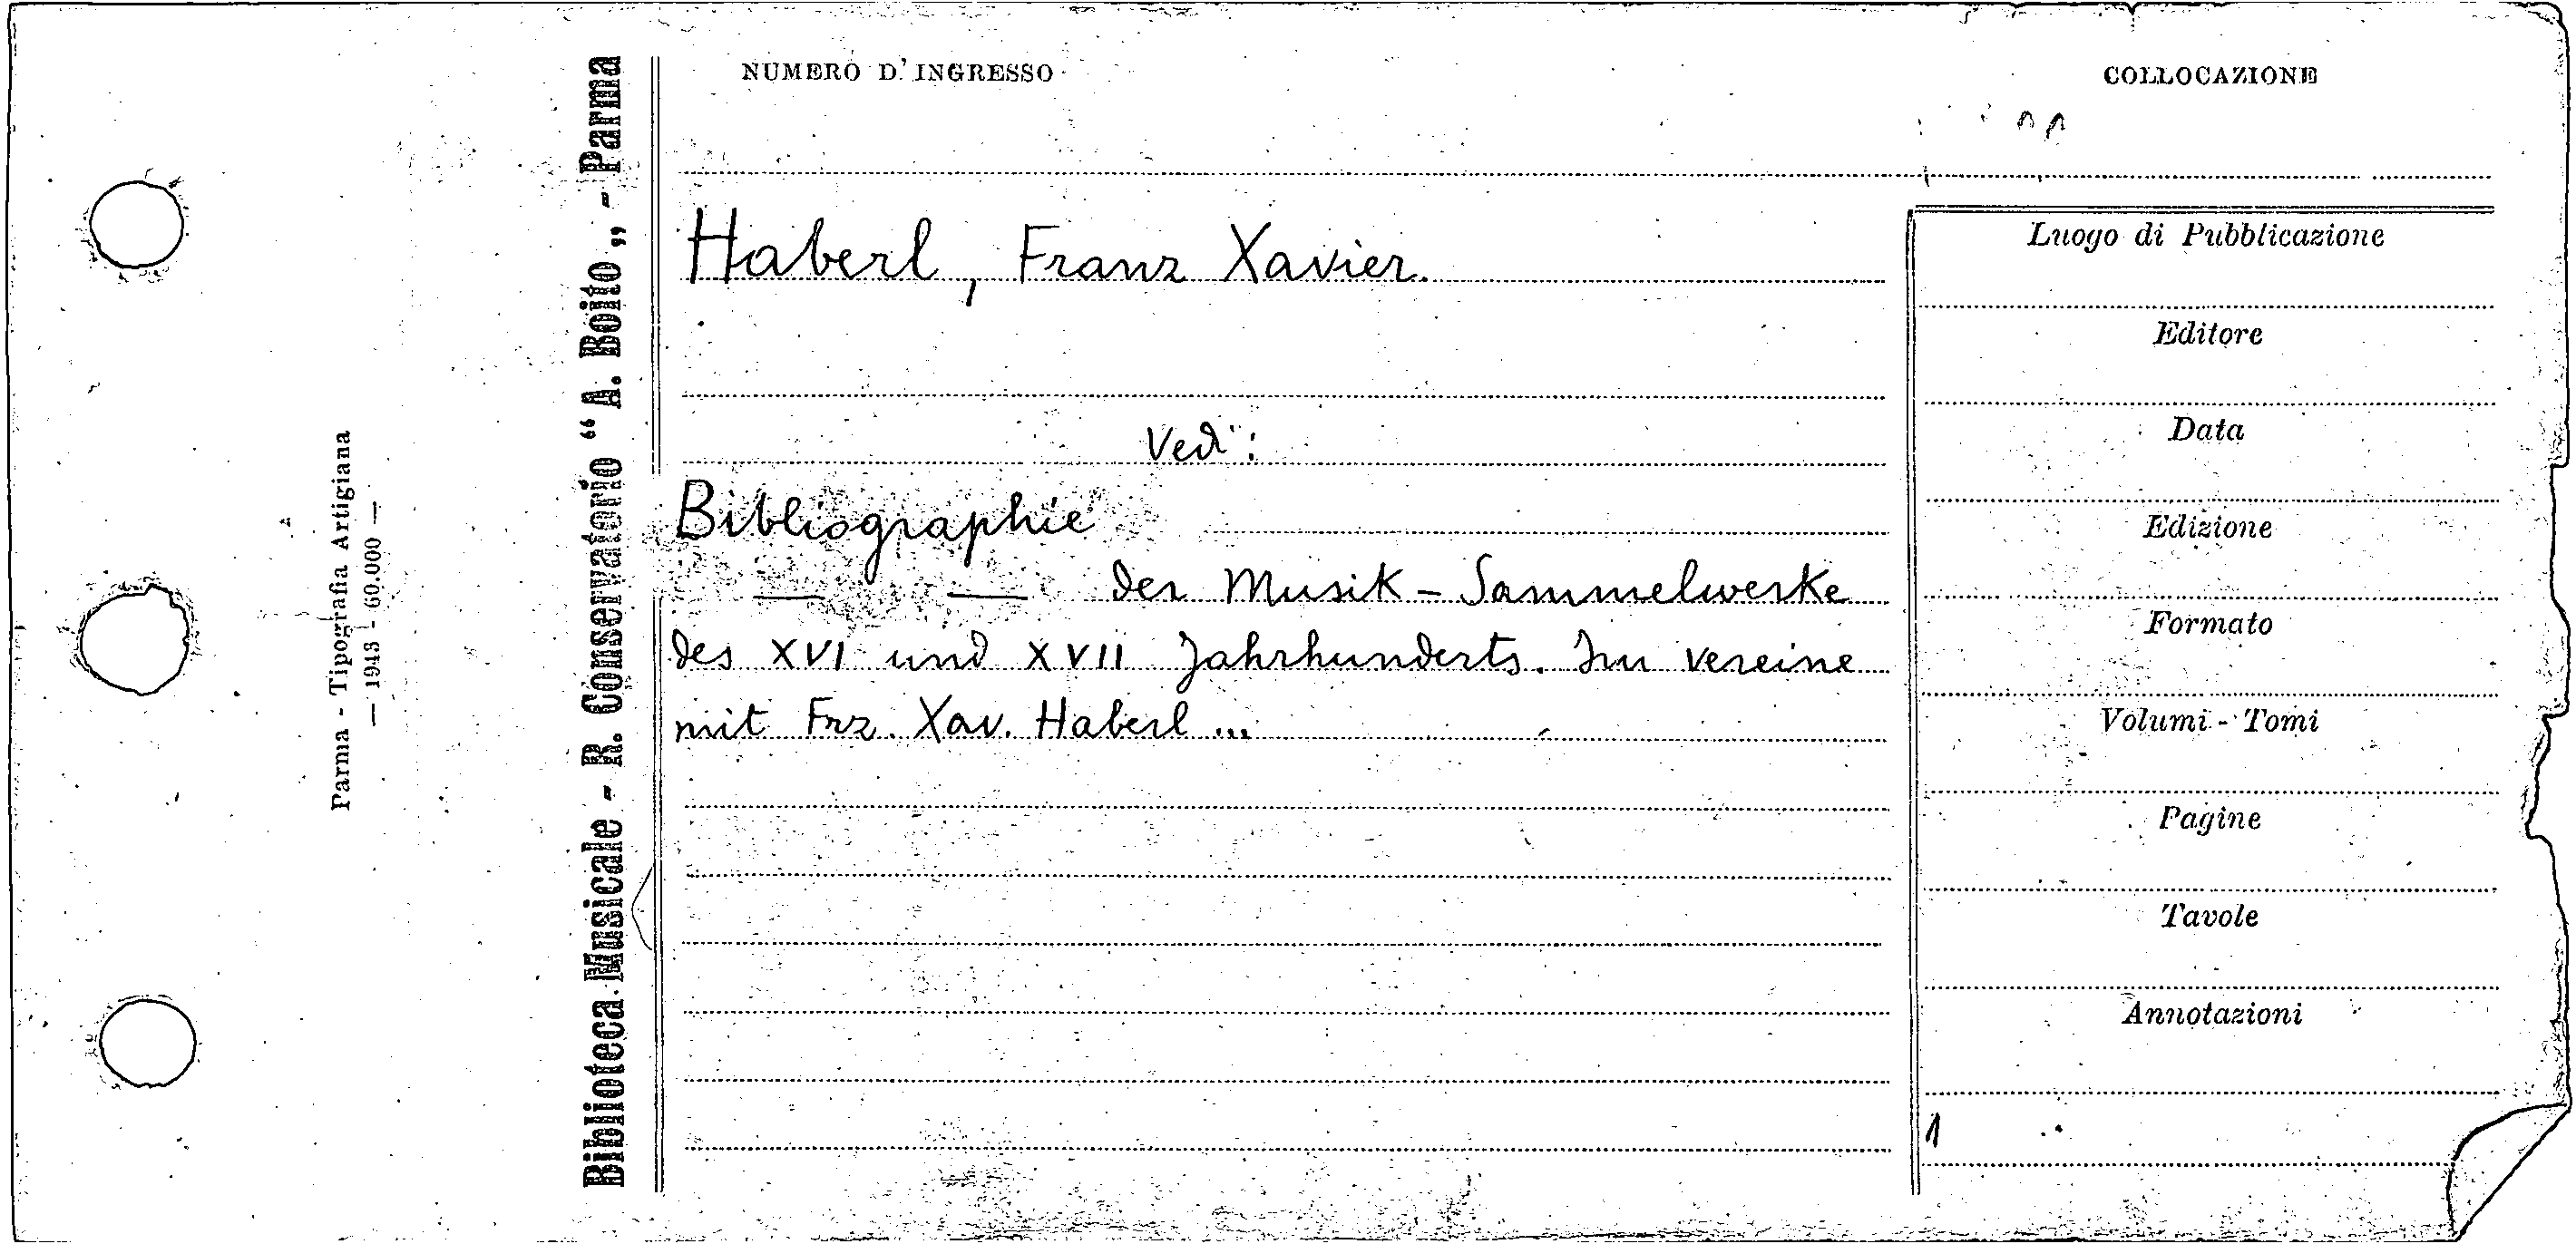 NUMERO D'INGRESSO
COLLOCAZIONE
Haberl, Franz Xavier.
Vedi:
Bibliographie
— — der Musik - Sammelwerke
des XVI und XVII Jahrhunderts. Im vereine
mit Frz. Xav. Haberl ...
Luogo di Pubblicazione
Editore
Data
Edizione
Formato
Volumi - Tomi
Pagine
Tavole
Annotazioni
1
Biblioteca Musicale - R. Conservatorio “A. Boito„ - Parma
Parma - Tipografia Artigiana
— 1943 - 60.000 —